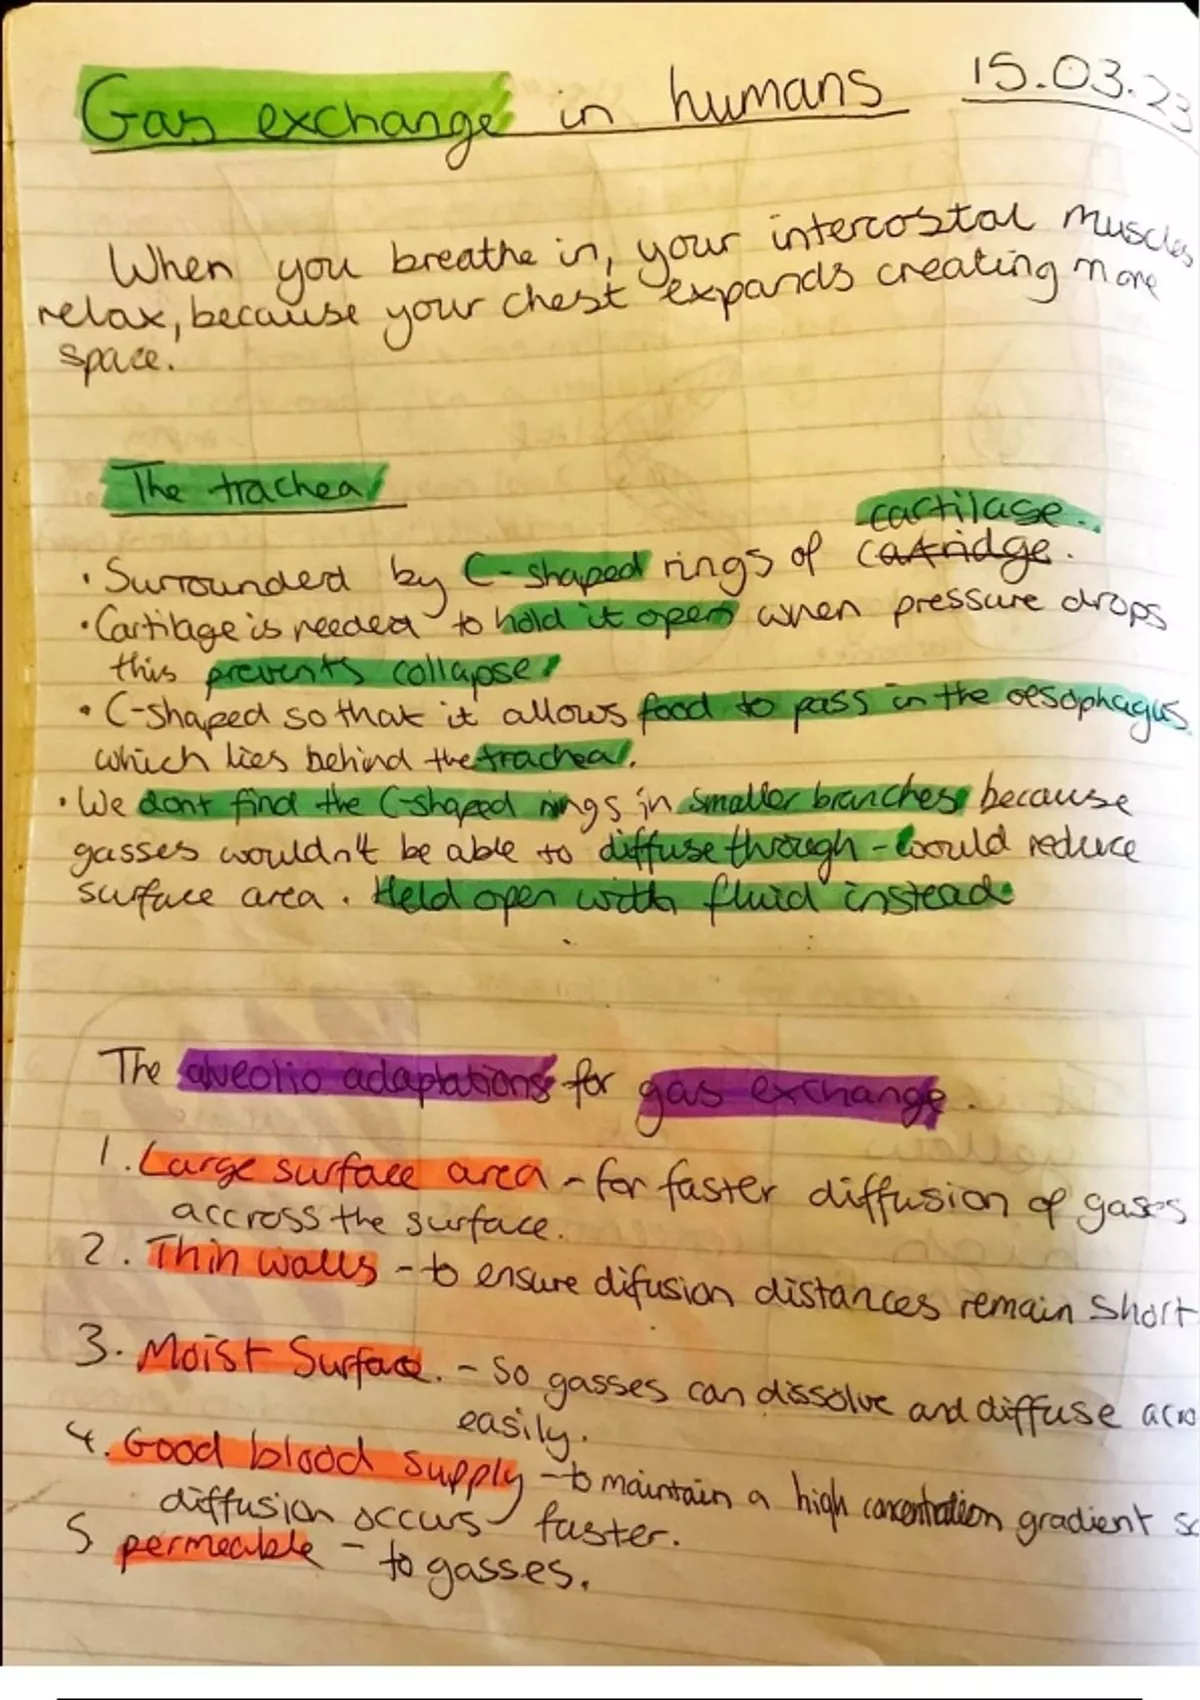 Gas exchange in humans 15.03.23
When you breathe in, your intercostal muscles
relax, because your chest expands creating more
space.
The trachea
cartilage.
• Surrounded by C-shaped rings of catridge.
• Cartilage is needed to hold it open when pressure drops
this prevents collapse.
• C-shaped so that it allows food to pass in the oesophagus
which lies behind the trachea.
• We dont find the C-shaped rings in smaller branches because
gasses wouldn't be able to diffuse through - would reduce
surface area. Held open with fluid instead
The alveolio adaptations for gas exchange.
1. Large surface area - for faster diffusion of gases
accross the surface.
2. Thin walls - to ensure difusion distances remain short
3. Moist Surface. - So gasses can dissolve and diffuse acro
easily.
4. Good blood supply - to maintain a high concentration gradient so
diffusion occurs faster.
5 permeable - to gasses.